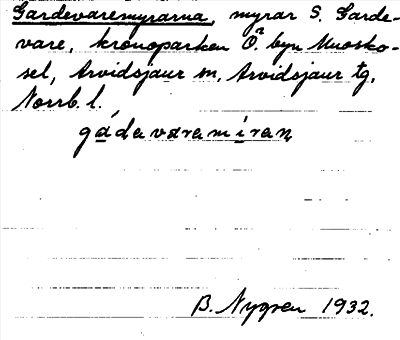 Gardevaremyrarna, myrar S. Garde-
vare, kronoparken Ö. byn Muosko-
sel, Arvidsjaur sn, Arvidsjaur tg,
Norrb. l.
gádavaramiran
B. Nygren 1932.